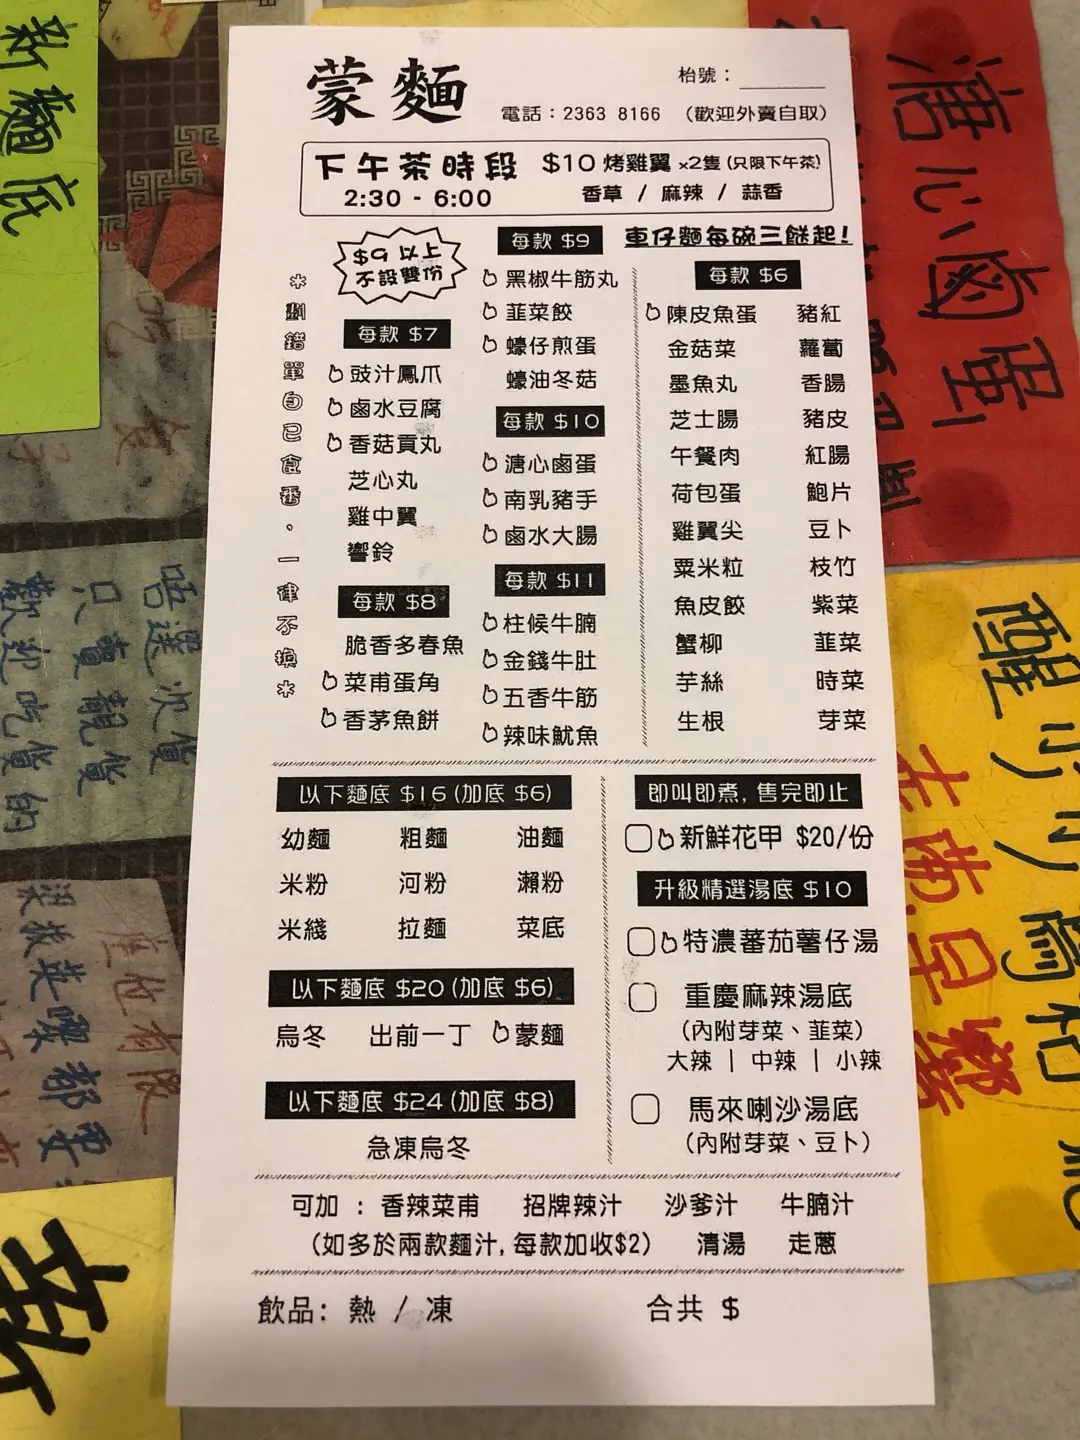 蒙麵
枱號：
電話：2363 8166 （歡迎外賣自取）
下午茶時段
2:30 - 6:00
$10 烤雞翼 x2隻 (只限下午茶)
香草 / 麻辣 / 蒜香
$9 以上
不設雙份
車仔麵每碗三餸起!
*劃錯單自己食番，一律不換*
每款 $7
豉汁鳳爪
鹵水豆腐
香菇貢丸
芝心丸
雞中翼
響鈴
每款 $8
脆香多春魚
菜甫蛋角
香茅魚餅
每款 $9
黑椒牛筋丸
韮菜餃
蠔仔煎蛋
蠔油冬菇
每款 $10
溏心鹵蛋
南乳豬手
鹵水大腸
每款 $11
柱候牛腩
金錢牛肚
五香牛筋
辣味魷魚
每款 $6
陳皮魚蛋 豬紅
金菇菜 蘿蔔
墨魚丸 香腸
芝士腸 豬皮
午餐肉 紅腸
荷包蛋 鮑片
雞翼尖 豆卜
粟米粒 枝竹
魚皮餃 紫菜
蟹柳 韮菜
芋絲 時菜
生根 芽菜
以下麵底 $16 (加底 $6)
幼麵 粗麵 油麵
米粉 河粉 瀨粉
米綫 拉麵 菜底
以下麵底 $20 (加底 $6)
烏冬 出前一丁 蒙麵
以下麵底 $24 (加底 $8)
急凍烏冬
即叫即煮, 售完即止
新鮮花甲 $20/份
升級精選湯底 $10
特濃蕃茄薯仔湯
重慶麻辣湯底
（內附芽菜、韮菜）
大辣 | 中辣 | 小辣
馬來喇沙湯底
（內附芽菜、豆卜）
可加 : 香辣菜甫 招牌辣汁 沙爹汁 牛腩汁
（如多於兩款麵汁, 每款加收$2） 清湯 走蔥
飲品: 熱 / 凍 合共 $
新麵底
溏心鹵蛋
唔選次貨
只賣靚貨
歡迎吃貨的